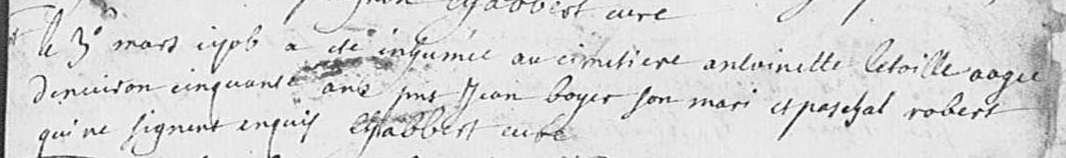 Chabbert curé
le 3e mars 1706 a été inhumée au cimetiere antoinette letoille aagee
denuiron cinquante ans pnts Jean boyer son mari et paschal robert
qui ne signent enquis Chabbert curé